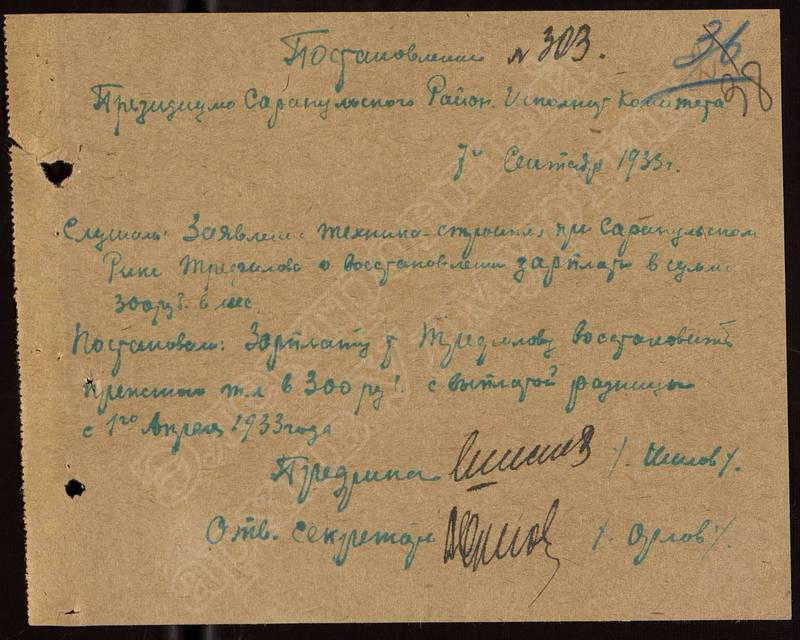 Постановление № 303.
36
38
Президиума Сарапульского Район. Исполнит Комитета
7го Сентябр 1933 г.
Слушали: Заявление техника-строителя при Сарапульском
Рике Трефилова о восстановлении зарплаты в сумме
300 руб. в мес
Постановили: Зарплату т Трефилову восстановить
в 300 руб. с выплатой разницы
с 1го Апреля 1933 года
Предрика /. /.
Отв. Секретарь /. Орлов /.